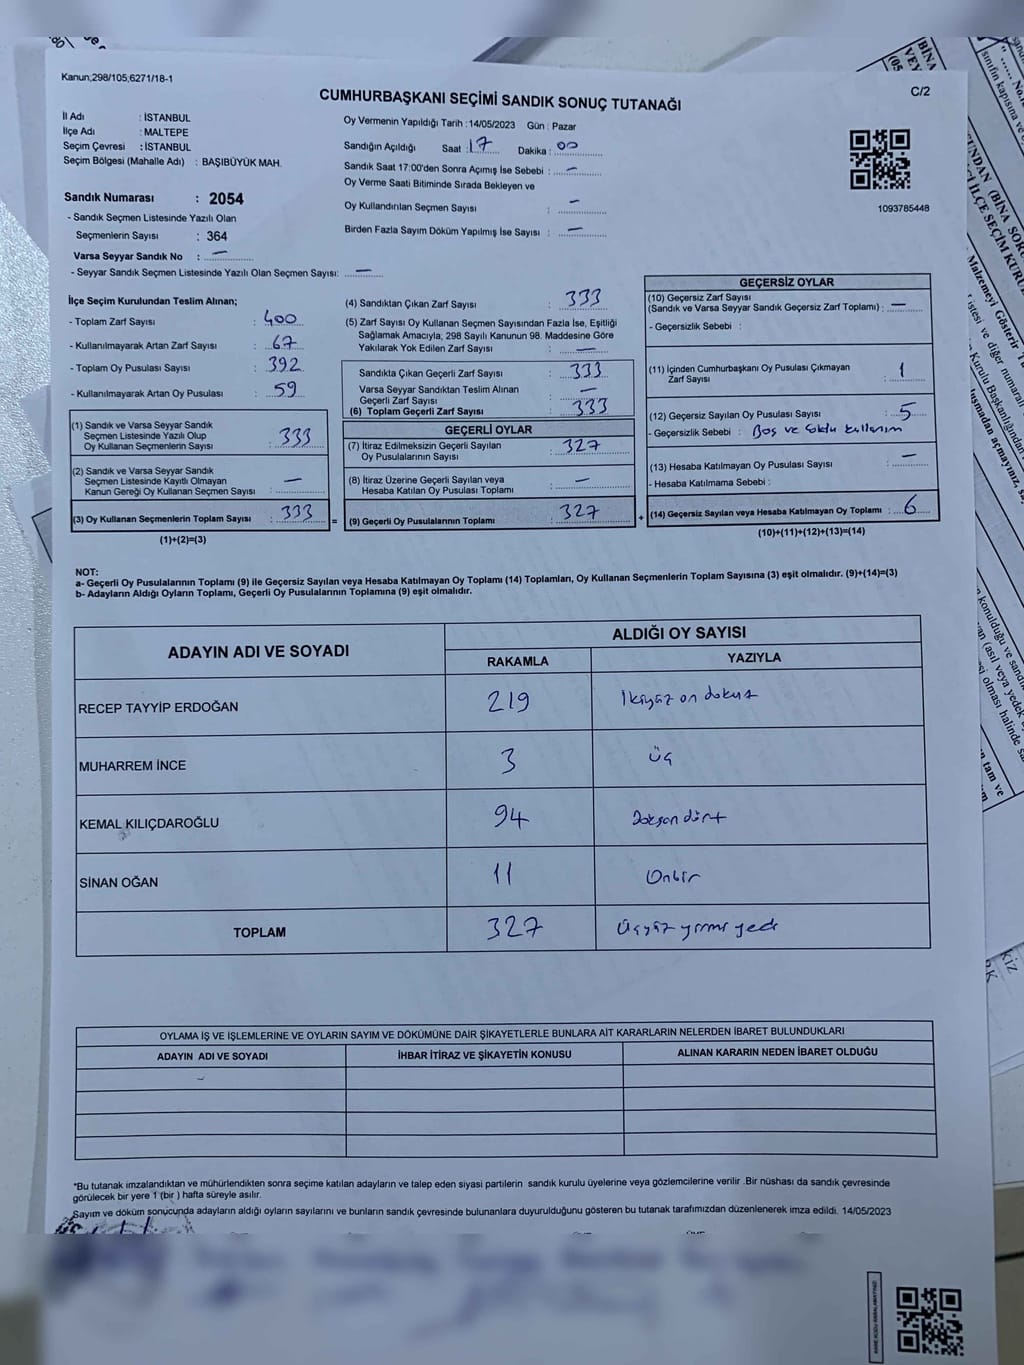 Kanun;298/105;6271/18-1
C/2
CUMHURBAŞKANI SEÇİMİ SANDIK SONUÇ TUTANAĞI
İl Adı : İSTANBUL
İlçe Adı : MALTEPE
Seçim Çevresi : İSTANBUL
Seçim Bölgesi (Mahalle Adı) : BAŞIBÜYÜK MAH.
Sandık Numarası : 2054
- Sandık Seçmen Listesinde Yazılı Olan
Seçmenlerin Sayısı : 364
Varsa Seyyar Sandık No : —
- Seyyar Sandık Seçmen Listesinde Yazılı Olan Seçmen Sayısı: —
Oy Vermenin Yapıldığı Tarih :14/05/2023 Gün : Pazar
Sandığın Açıldığı Saat : 17 Dakika : 00
Sandık Saat 17:00'den Sonra Açımış İse Sebebi : —
Oy Verme Saati Bitiminde Sırada Bekleyen ve
Oy Kullandırılan Seçmen Sayısı : —
Birden Fazla Sayım Döküm Yapılmış İse Sayısı : —
1093785448
İlçe Seçim Kurulundan Teslim Alınan;
- Toplam Zarf Sayısı : 400
- Kullanılmayarak Artan Zarf Sayısı : 67
- Toplam Oy Pusulası Sayısı : 392
- Kullanılmayarak Artan Oy Pusulası : 59
(1) Sandık ve Varsa Seyyar Sandık
Seçmen Listesinde Yazılı Olup
Oy Kullanan Seçmenlerin Sayısı : 333
(2) Sandık ve Varsa Seyyar Sandık
Seçmen Listesinde Kayıtlı Olmayan
Kanun Gereği Oy Kullanan Seçmen Sayısı : —
(3) Oy Kullanan Seçmenlerin Toplam Sayısı : 333 =
(1)+(2)=(3)
(4) Sandıktan Çıkan Zarf Sayısı : 333
(5) Zarf Sayısı Oy Kullanan Seçmen Sayısından Fazla İse, Eşitliği
Sağlamak Amacıyla; 298 Sayılı Kanunun 98. Maddesine Göre
Yakılarak Yok Edilen Zarf Sayısı : —
Sandıkta Çıkan Geçerli Zarf Sayısı : 333
Varsa Seyyar Sandıktan Teslim Alınan
Geçerli Zarf Sayısı : —
(6) Toplam Geçerli Zarf Sayısı : 333
GEÇERLİ OYLAR
(7) İtiraz Edilmeksizin Geçerli Sayılan
Oy Pusulalarının Sayısı : 327
(8) İtiraz Üzerine Geçerli Sayılan veya
Hesaba Katılan Oy Pusulası Toplamı : —
(9) Geçerli Oy Pusulalarının Toplamı : 327 +
GEÇERSİZ OYLAR
(10) Geçersiz Zarf Sayısı
(Sandık ve Varsa Seyyar Sandık Geçersiz Zarf Toplamı) : —
- Geçersizlik Sebebi :
(11) İçinden Cumhurbaşkanı Oy Pusulası Çıkmayan
Zarf Sayısı : 1
(12) Geçersiz Sayılan Oy Pusulası Sayısı : 5
- Geçersizlik Sebebi : Boş ve
(13) Hesaba Katılmayan Oy Pusulası Sayısı : —
- Hesaba Katılmama Sebebi :
(14) Geçersiz Sayılan veya Hesaba Katılmayan Oy Toplamı : 6
(10)+(11)+(12)+(13)=(14)
NOT:
a- Geçerli Oy Pusulalarının Toplamı (9) ile Geçersiz Sayılan veya Hesaba Katılmayan Oy Toplamı (14) Toplamları, Oy Kullanan Seçmenlerin Toplam Sayısına (3) eşit olmalıdır. (9)+(14)=(3)
b- Adayların Aldığı Oyların Toplamı, Geçerli Oy Pusulalarının Toplamına (9) eşit olmalıdır.
ADAYIN ADI VE SOYADI ALDIĞI OY SAYISI
RAKAMLA YAZIYLA
RECEP TAYYİP ERDOĞAN 219 İkiyüz on dokuz
MUHARREM İNCE 3 üç
KEMAL KILIÇDAROĞLU 94 Doksan dört
SİNAN OĞAN 11 Onbir
TOPLAM 327 Üçyüz yirmi yedi
OYLAMA İŞ VE İŞLEMLERİNE VE OYLARIN SAYIM VE DÖKÜMÜNE DAİR ŞİKAYETLERLE BUNLARA AİT KARARLARIN NELERDEN İBARET BULUNDUKLARI
ADAYIN ADI VE SOYADI İHBAR İTİRAZ VE ŞİKAYETİN KONUSU ALINAN KARARIN NEDEN İBARET OLDUĞU
*Bu tutanak imzalandıktan ve mühürlendikten sonra seçime katılan adayların ve talep eden siyasi partilerin sandık kurulu üyelerine veya gözlemcilerine verilir .Bir nüshası da sandık çevresinde
görülecek bir yere 1 (bir ) hafta süreyle asılır.
Sayım ve döküm sonucunda adayların aldığı oyların sayılarını ve bunların sandık çevresinde bulunanlara duyurulduğunu gösteren bu tutanak tarafımızdan düzenlenerek imza edildi. 14/05/2023